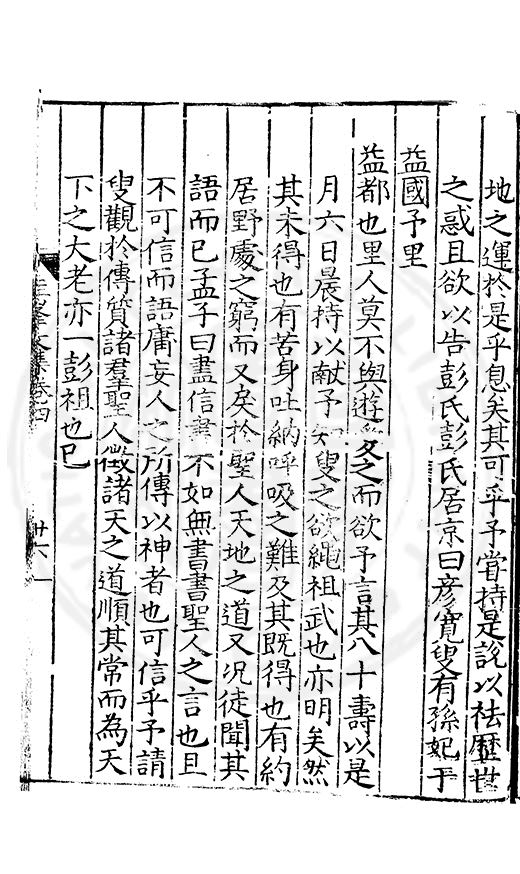 地之運於是乎息矣其可乎予嘗持是說以袪歷世
之惑且欲以告彭氏彭氏居京曰彥寬叟有孫妃于
益國予里
益都也里人莫不與遊愛之而欲予言其八十壽以是
月六日晨持以獻予知叟之欲繩祖武也亦明矣然
其未得也有苦身吐納呼吸之難及其既得也有約
居野處之窮而又戾於聖人天地之道又況徒聞其
語而已孟子曰盡信書不如無書書聖人之言也且
不可信而語庸妄人之所傳以神者也可信乎予請
叟觀於傳質諸羣聖人徵諸天之道順其常而為天
下之大老亦一彭祖也已
峯文集卷四
廿六